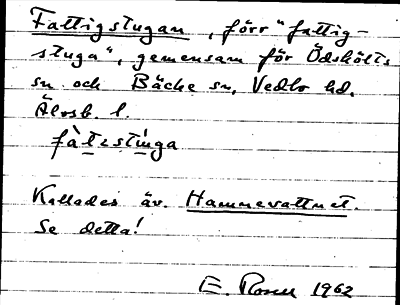 Fattigstugan, förr "fattig-
stuga", gemensam för Ödskölts
sn och Bäcke sn, Vedbo hd,
Älvsb. l.
Kallades äv. Hammevattnet.
Se detta!
E. Rosell 1962